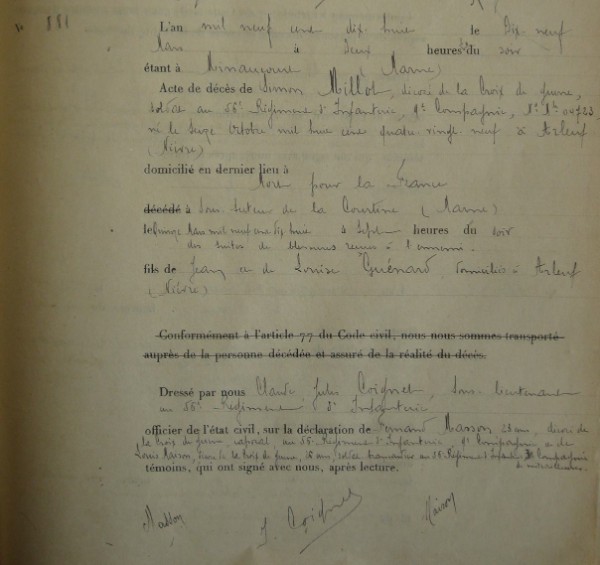 N° 881
L'an mil neuf cent dix huit le Dix neuf
Mars à Deux heures du soir
étant à Minaucourt (Marne)
Acte de décès de Simon Millot, décoré de la Croix de guerre,
soldat au 56e Régiment d'Infanterie, 9e Compagnie, Mle 04723
né le Seize Octobre mil huit cent quatre vingt neuf à Arleuf
(Nièvre)
domicilié en dernier lieu à
Mort pour la France
décédé à Sous Secteur de la Courtine (Marne)
le Quinze Mars mil neuf cent dix huit à Sept heures du soir
des suites de blessures reçues à l'ennemi.
fils de Jean et de Louise Guénard, domiciliés à Arleuf
(Nièvre)
Conformément à l'article 77 du Code civil, nous nous sommes transporté
auprès de la personne décédée et assuré de la réalité du décès.
Dressé par nous Claude, Jules Coignet, Sous-lieutenant
au 56e Régiment d'Infanterie
officier de l'état civil, sur la déclaration de Fernand Masson 23 ans, décoré de
la Croix de guerre, caporal au 56e Régiment d'Infanterie 9e Compagnie et de
Louis Maison, décoré de la Croix de guerre, ans, soldat brancardier au 56e Régiment d'Infanterie Compagnie
de mitrailleuses.
témoins, qui ont signé avec nous, après lecture.
Masson J. Coignet Maison